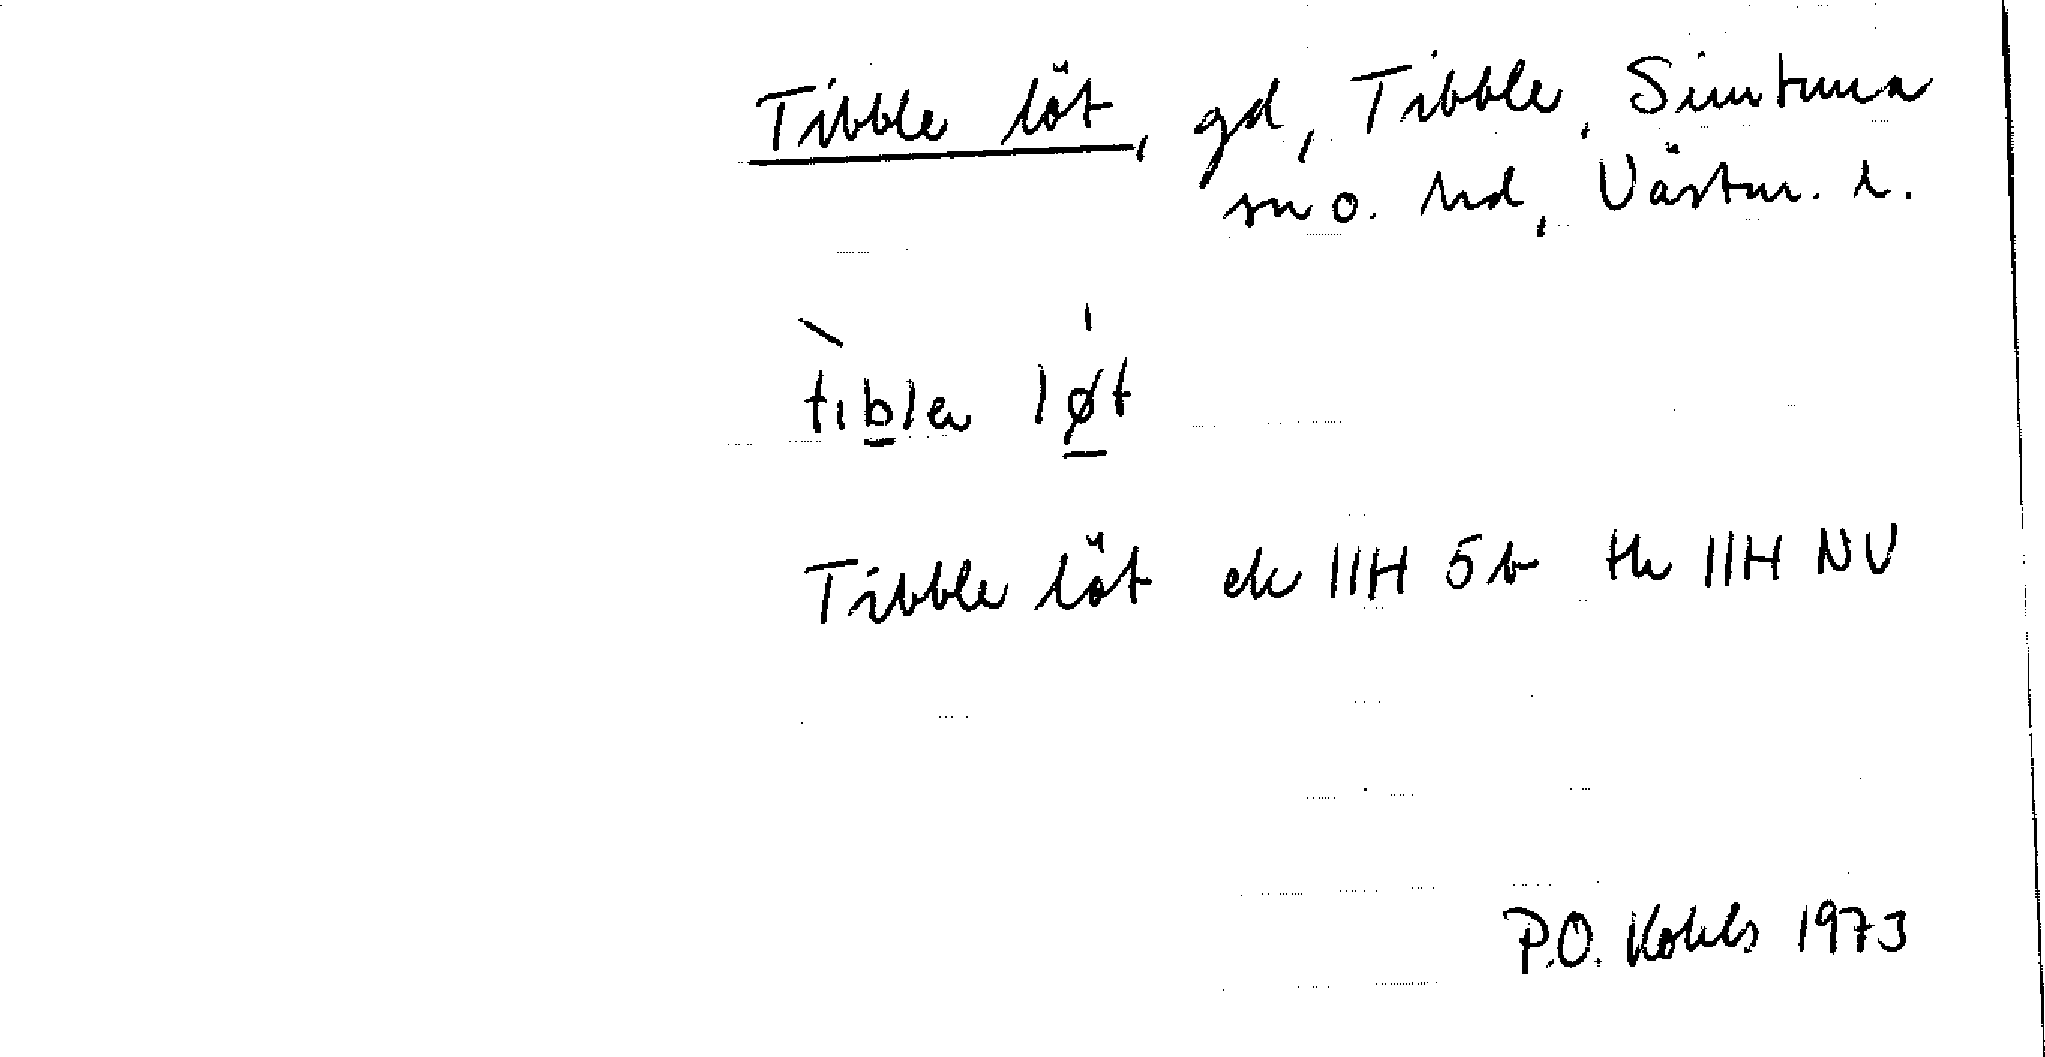 Tibble löt, gd, Tibble, Simtuna
sn o. hd, Västm. l.
tibla løt
Tibble löt ek 11H 5b th 11H NV
P.O. Kohls 1973